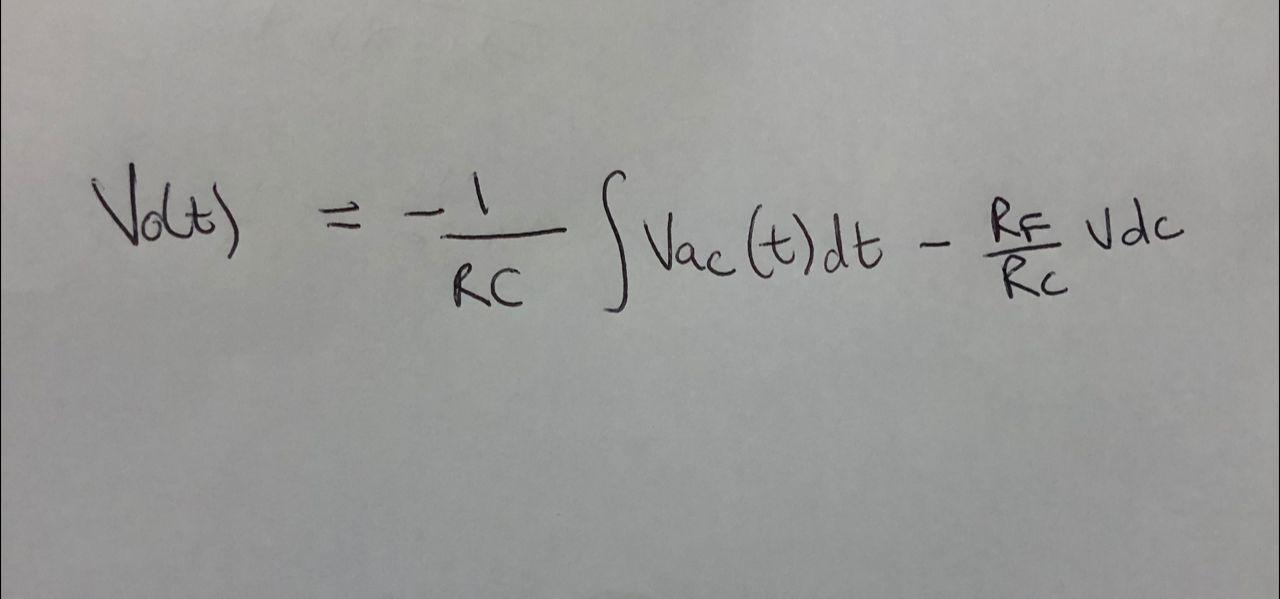 Vo(t) = -1/RC ∫Vac(t)dt - RF/RC Vdc